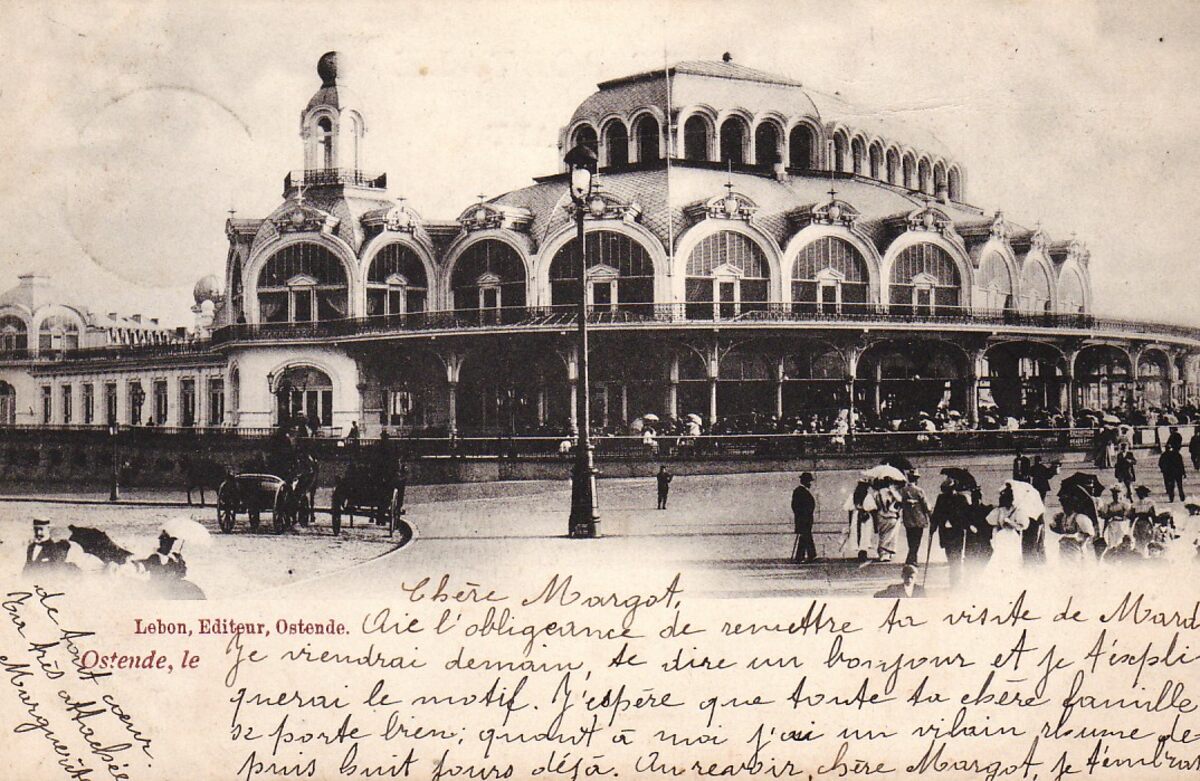 Chère Margot,
Lebon, Editeur, Ostende. Aie l'obligeance de remettre ta visite de Mard
Ostende, le
Je viendrai demain, te dire un bonjour et je t'expli
querai le motif. J'espère que toute ta chère famille
se porte bien; quant à moi j'ai un vilain rhume de
puis huit jours déjà. Au revoir, chère Margot, je t'embras
de tout cœur
Ta très attachée
Marguerite